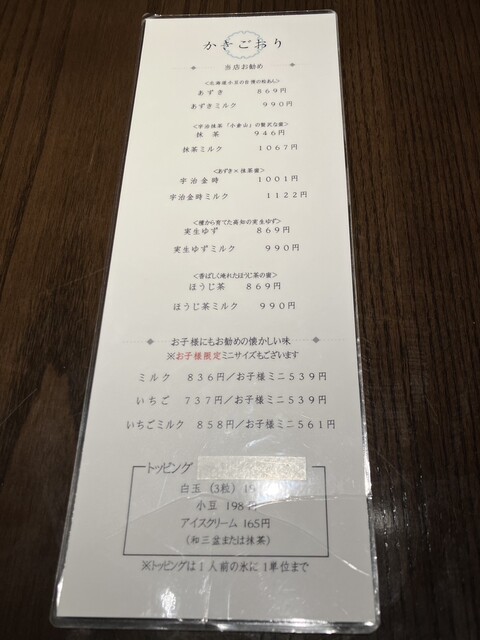 かきごおり
当店お勧め
<北海道小豆の自慢の粒あん>
あずき 869円
あずきミルク 990円
<宇治抹茶「小倉山」の贅沢な蜜>
抹茶 946円
抹茶ミルク 1067円
<あずき×抹茶蜜>
宇治金時 1001円
宇治金時ミルク 1122円
<種から育てた高知の実生ゆず>
実生ゆず 869円
実生ゆずミルク 990円
<香ばしく淹れたほうじ茶の蜜>
ほうじ茶 869円
ほうじ茶ミルク 990円
お子様にもお勧めの懐かしい味
※お子様限定ミニサイズもございます
ミルク 836円/お子様ミニ539円
いちご 737円/お子様ミニ539円
いちごミルク 858円/お子様ミニ561円
トッピング
白玉(3粒)
小豆 198円
アイスクリーム 165円
(和三盆または抹茶)
※トッピングは1人前の氷に1単位まで